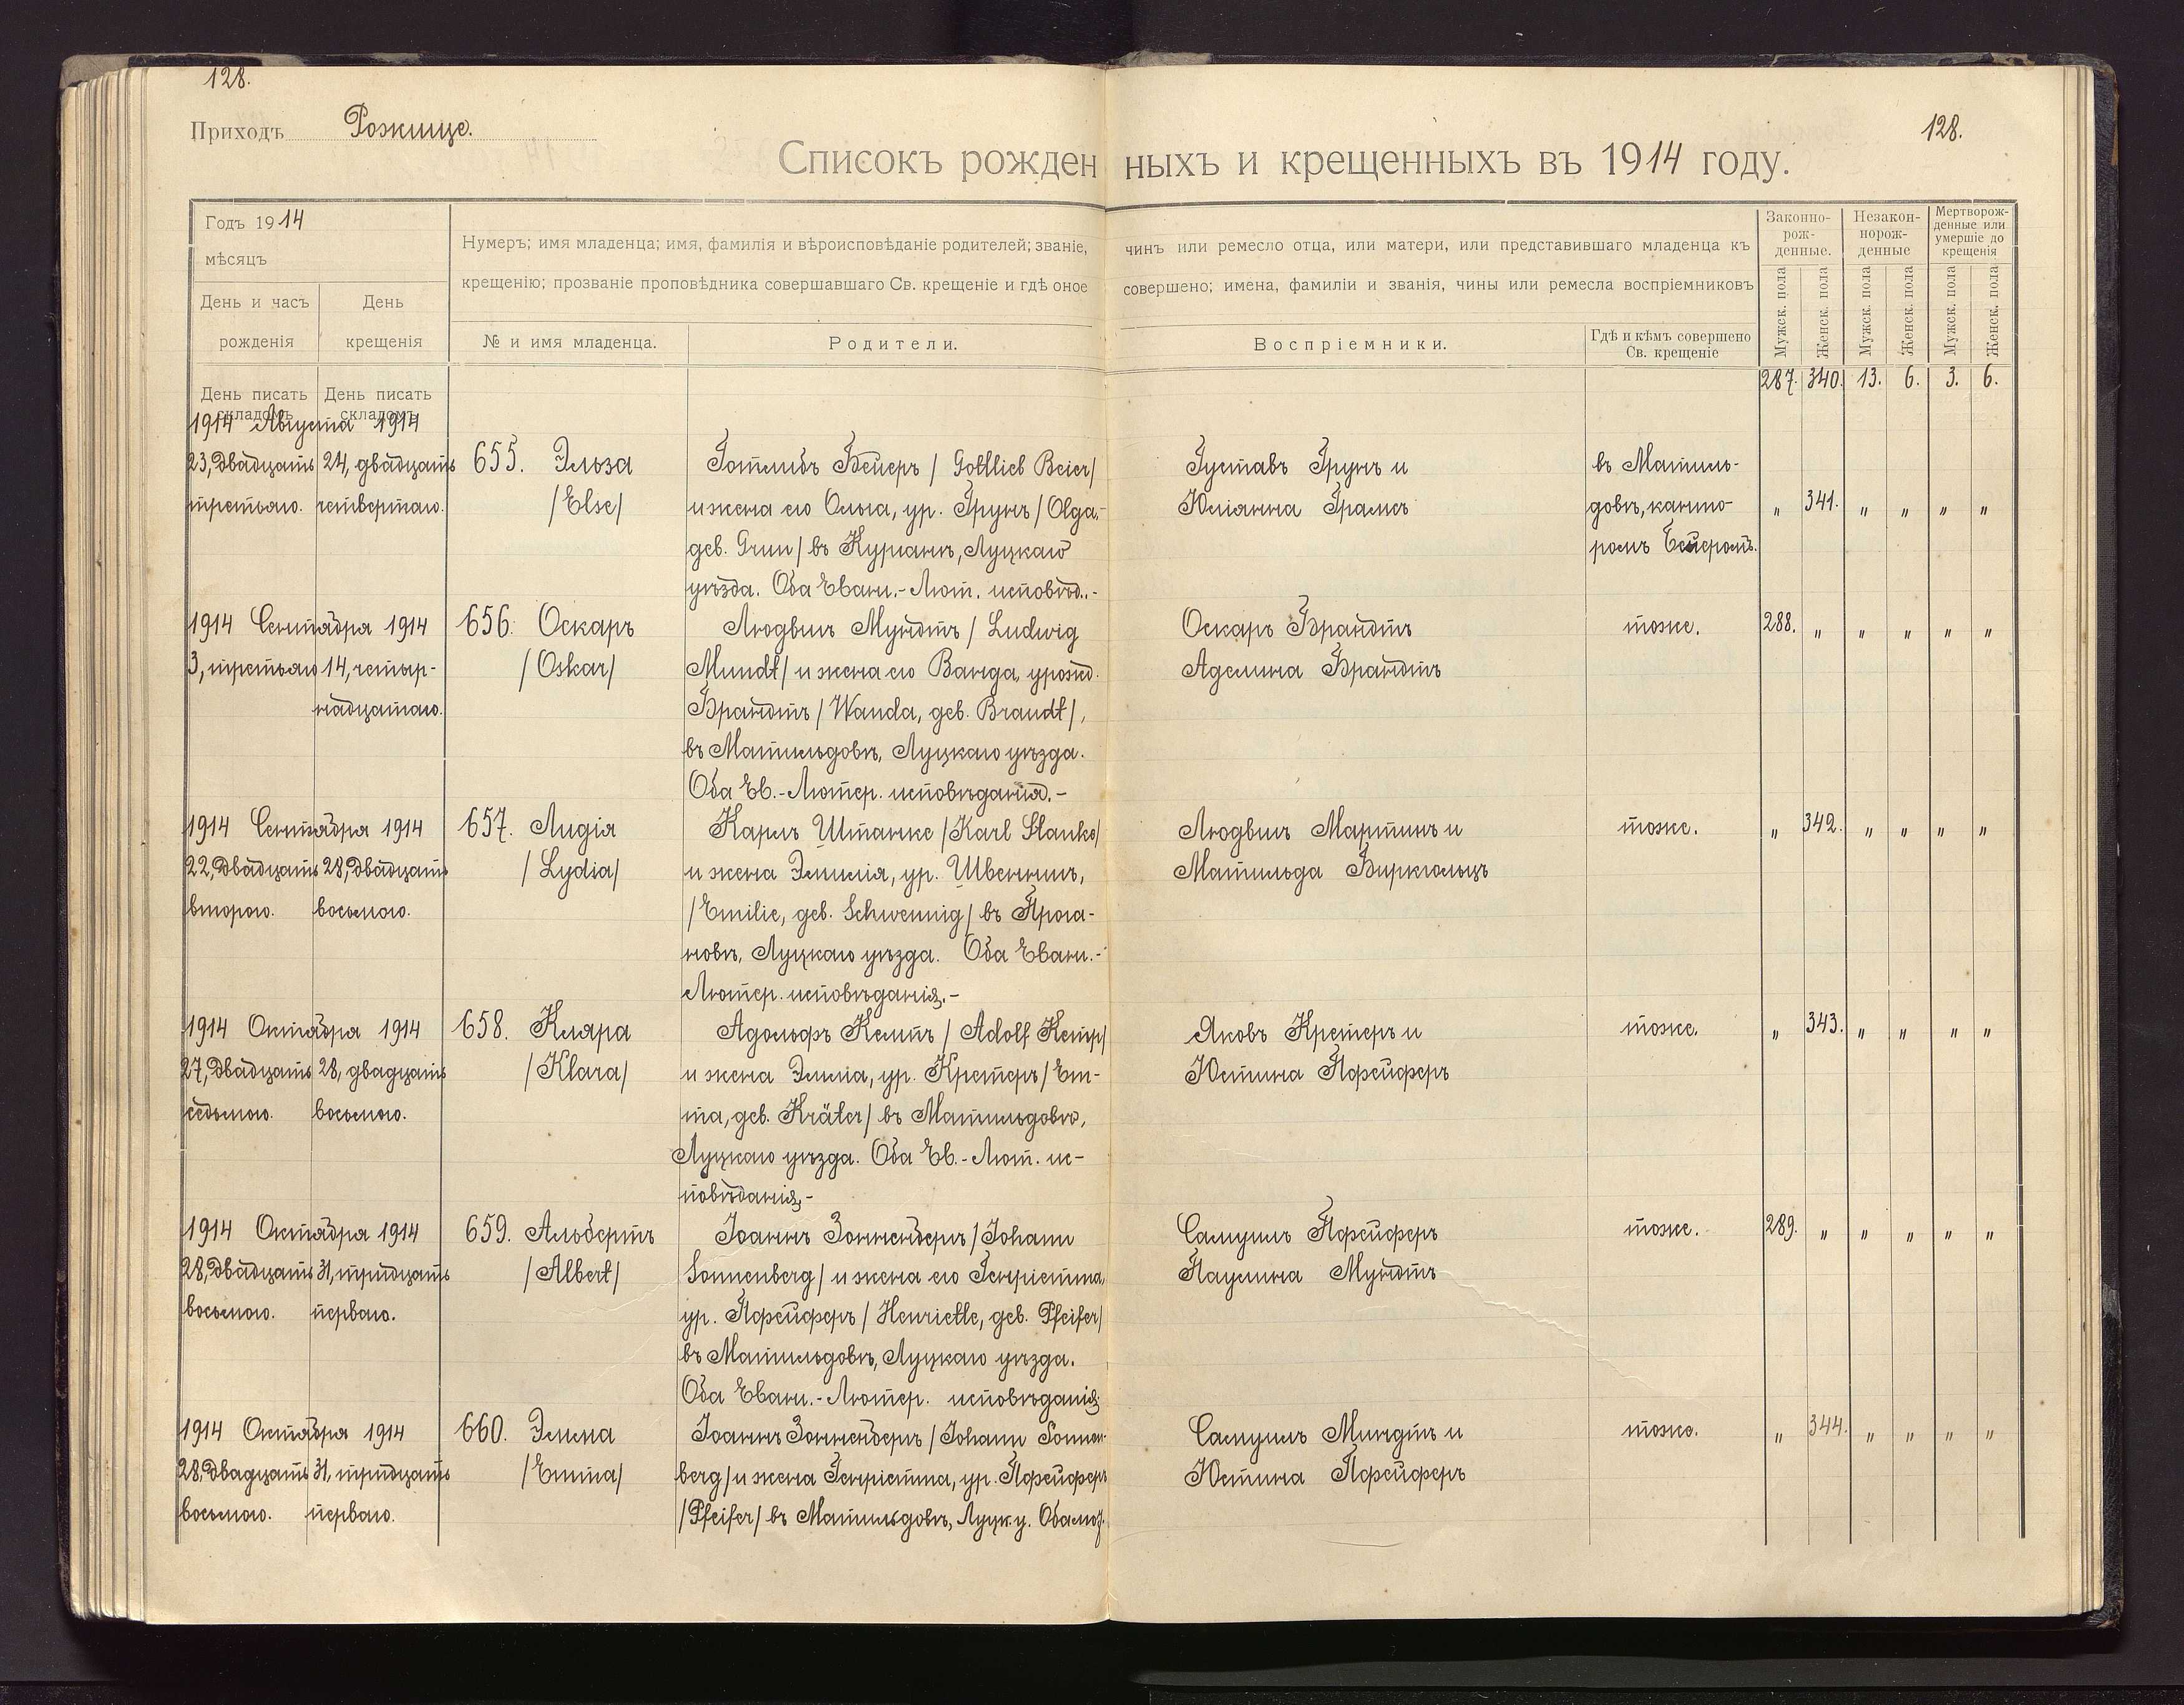 128.
128.
Приходъ Рожище.
Списокъ рожденныхъ и крещенныхъ въ 1914 году.
Годъ 1914
мѣсяцъ
День и часъ рожденія
День крещенія
Нумеръ; имя младенца; имя, фамилія и вѣроисповѣданіе родителей; званіе, чинъ или ремесло отца, или матери, или представившаго младенца къ
крещенію; прозваніе проповѣдника совершавшаго Св. крещеніе и гдѣ оное совершено; имена, фамиліи и званія, чины или ремесла воспріемниковъ
№ и имя младенца.
Родители.
Воспріемники.
Гдѣ и кѣмъ совершено
Св. крещеніе
Законно-
рож-
денные.
Незакон-
норож-
денные
Мертворож-
денные или
умершіе до
крещенія
Мужск. пола
Женск. пола
Мужск. пола
Женск. пола
Мужск. пола
Женск. пола
День писать складомъ
День писать складомъ
287. 340. 13. 6. 3. 6.
1914 Августа 1914
23, двадцать
третьяго.
24, двадцать
четвертаго.
655. Эльза
/Else/
Готлибъ Бейеръ /Gottlieb Beier/
и жена его Ольга, ур. Грунъ /Olga,
geb. Grun/ въ Курганѣ, Луцкаго
уѣзда. Оба Еванг.-Лют. исповѣд.-
Густавъ Грунъ и
Юліанна Грамсъ
въ Матиль-
довѣ, канто-
ромъ Бейеромъ.
„ 341. „ „ „ „
1914 Сентября 1914
3, третьяго
14, четыр-
надцатаго.
656. Оскаръ
/Oskar/
Людвигъ Мундтъ /Ludwig
Mundt/ и жена его Ванда, урожд.
Брандтъ /Wanda, geb. Brandt/,
въ Матильдовѣ, Луцкаго уѣзда.
Оба Ев.-Лютер. исповѣданія.-
Оскаръ Брандтъ
Аделина Брандтъ
тоже.
288. „ „ „ „ „
1914 Сентября 1914
22, двадцать
второго.
28, двадцать
восьмого.
657. Лидія
/Lydia/
Карлъ Штанке /Karl Stanke/
и жена Эмилія, ур. Швеннигъ,
/Emilie, geb. Schwennig/ въ Прога-
новѣ, Луцкаго уѣзда. Оба Еванг.-
Лютер. исповѣданія.-
Людвигъ Мартинъ и
Матильда Биркгольцъ
тоже.
„ 342. „ „ „ „
1914 Октября 1914
27, двадцать
седьмого.
28, двадцать
восьмого.
658. Клара
/Klara/
Адольфъ Кемпъ /Adolf Kemp/
и жена Эмма, ур. Кретеръ /Em-
ma, geb. Kräter/ въ Матильдовѣ,
Луцкаго уѣзда. Оба Ев.-Лют. ис-
повѣданія.-
Яковъ Кретеръ и
Юстина Пфейферъ
тоже.
„ 343. „ „ „ „
1914 Октября 1914
28, двадцать
восьмого.
31, тридцать
перваго.
659. Альбертъ
/Albert/
Іоаннъ Зонненбергъ /Johann
Sonnenberg/ и жена его Генріетта,
ур. Пфейферъ /Henriette, geb. Pfeifer/
въ Матильдовѣ, Луцкаго уѣзда.
Оба Еванг.-Лютер. исповѣданія
Самуилъ Пфейферъ
Паулина Мундтъ
тоже.
289. „ „ „ „ „
1914 Октября 1914
28, двадцать
восьмого.
31, тридцать
перваго.
660. Эмма
/Emma/
Іоаннъ Зонненбергъ /Johann Sonnen-
berg/ и жена Генріетта, ур. Пфейферъ
/Pfeifer/ въ Матильдовѣ, Луцк. у. Оба
Самуилъ Миндтъ и
Юстина Пфейферъ
тоже.
„ 344. „ „ „ „